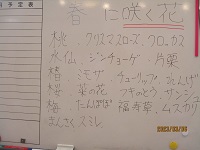 予定表
春に咲く花
桃 クリスマスローズ クロッカス
水仙 ジンチョーゲ 片栗
椿 ミモザ チューリップ れんげ
桜 菜の花 フキのとう サンシ
梅 たんぽぽ 福寿草 ムスカリ
まんさく スミレ
2023/03/08